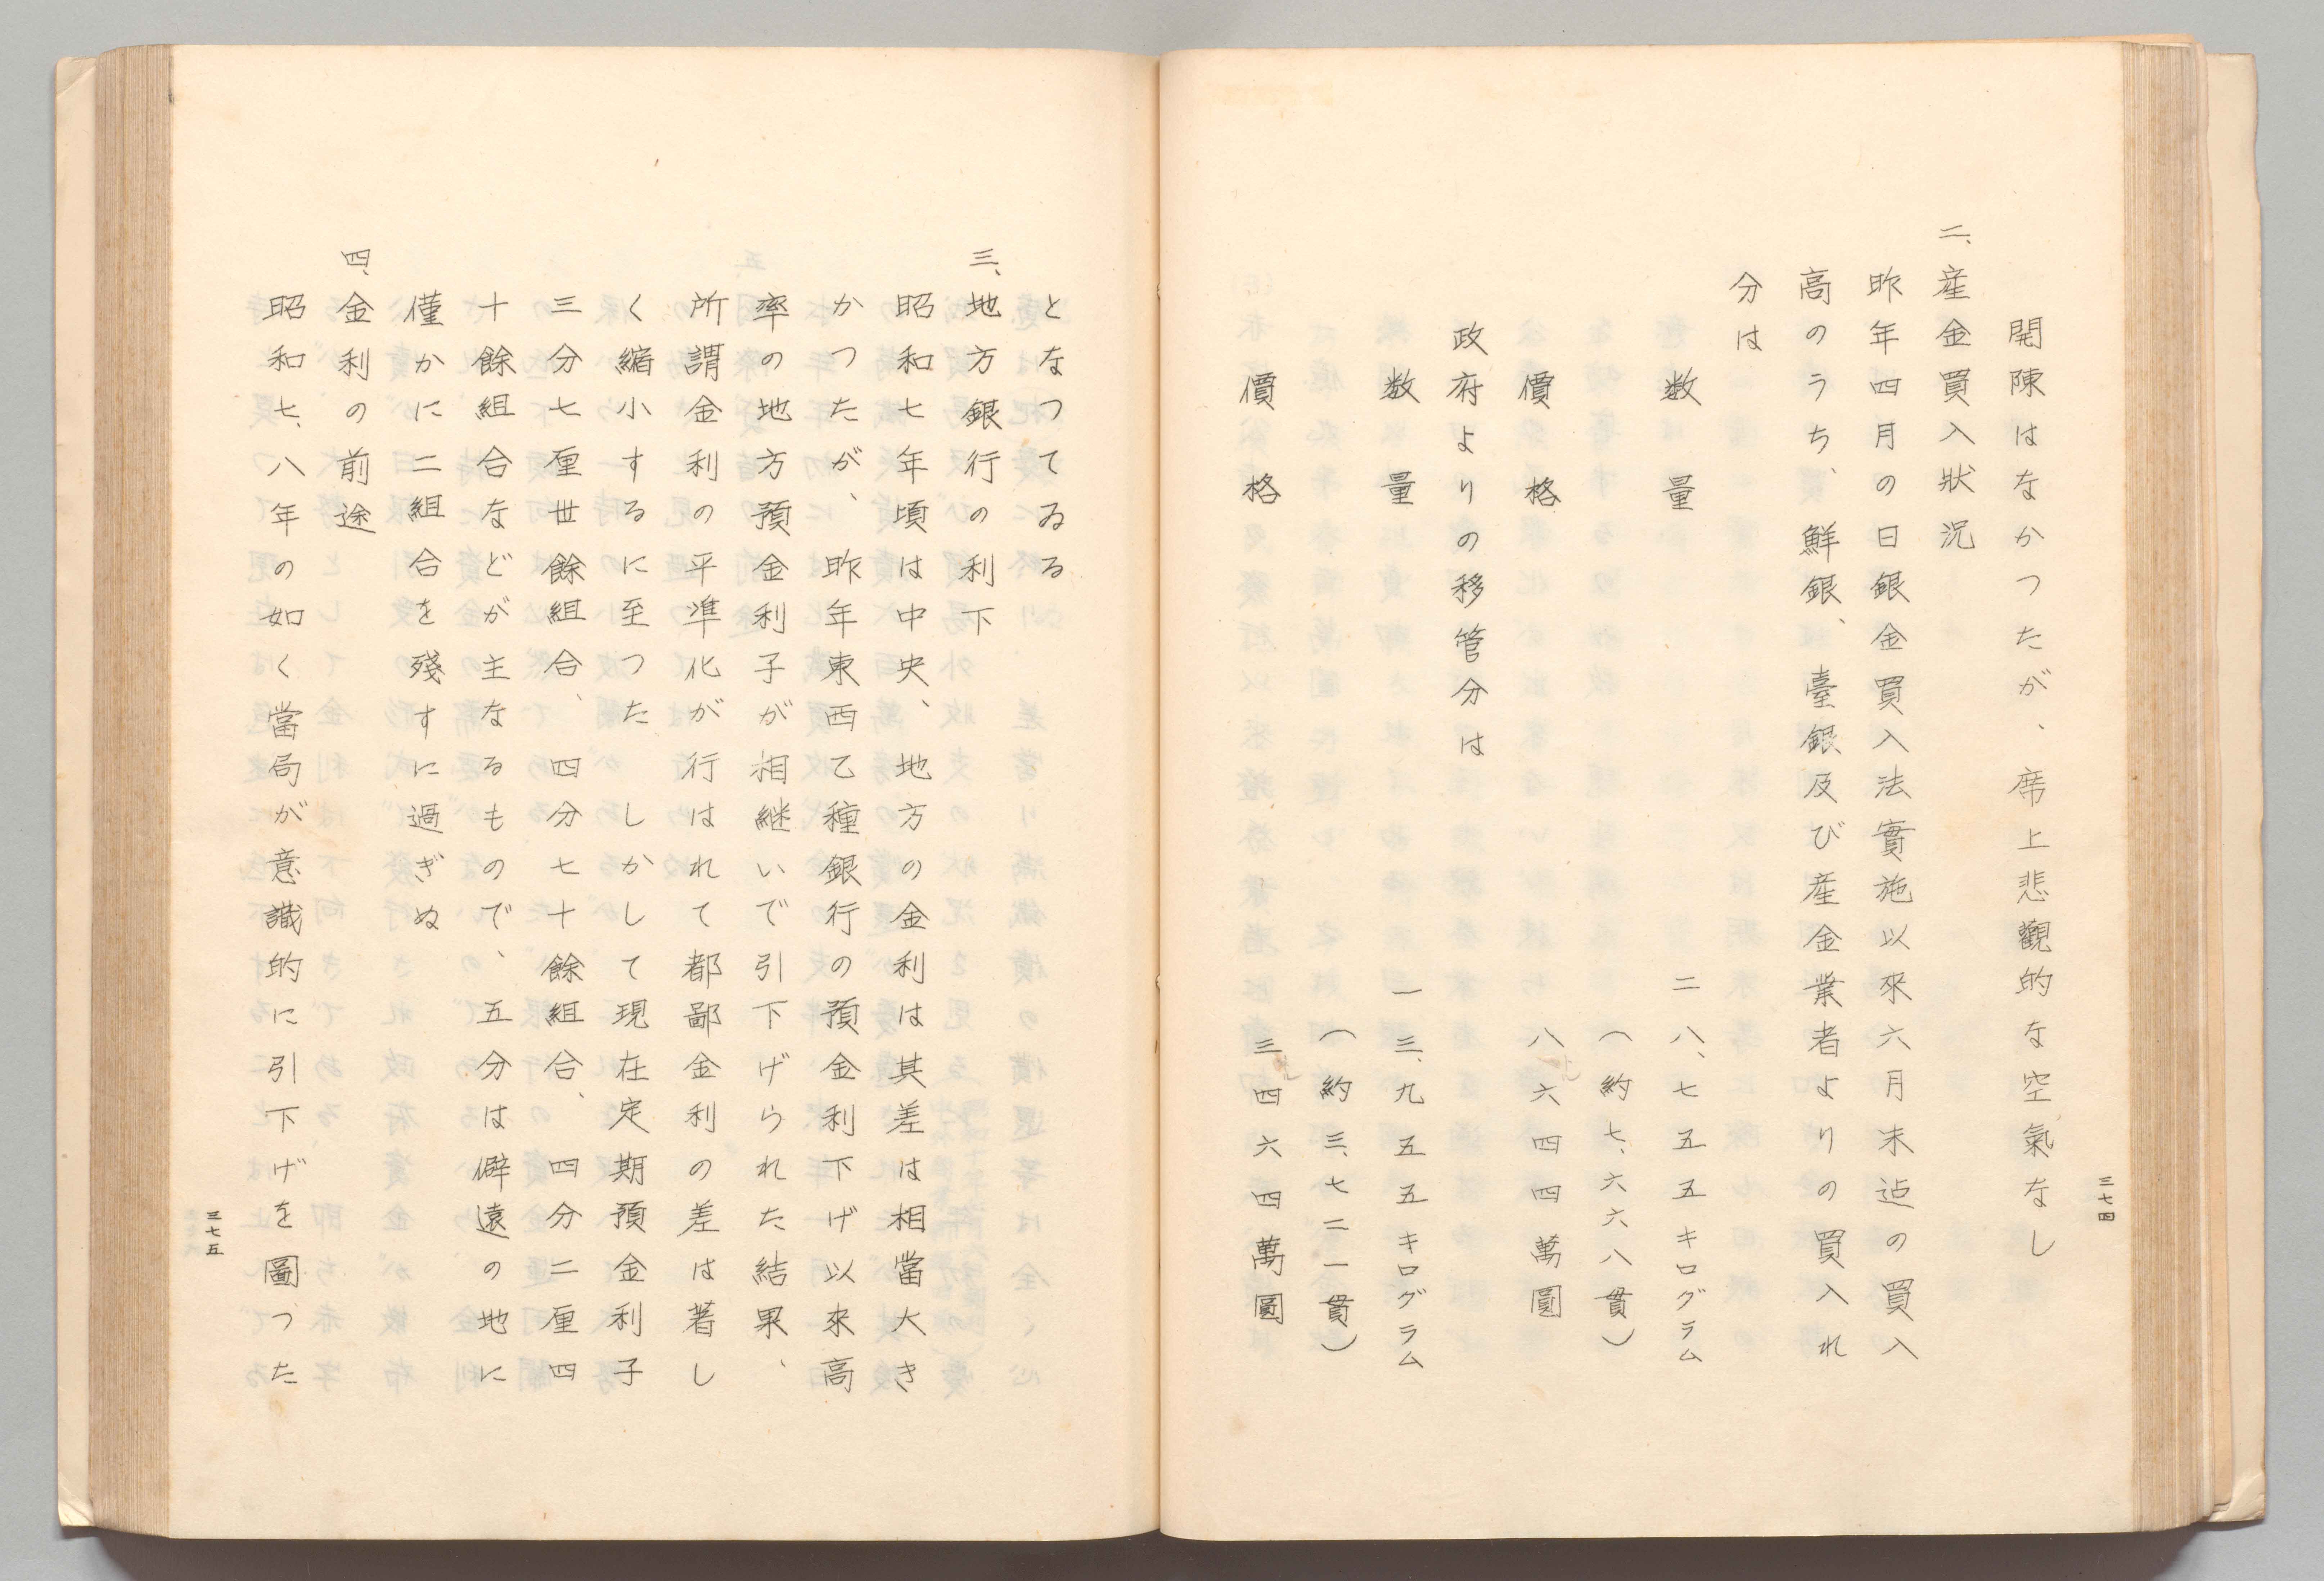 三七四
開陳はなかつたが、席上悲觀的な空氣なし
二、産金買入狀況
昨年四月の日銀金買入法實施以來六月末迠の買入
高のうち、鮮銀、臺銀及び産金業者よりの買入れ
分は
数量 二八、七五五キログラム
(約七、六六八貫)
價格 八六四四萬圓
政府よりの移管分は
数量 一三、九五五キログラム
(約三、七二一貫)
價格 三四六四萬圓
となつてゐる
三、地方銀行の利下
昭和七年頃は中央、地方の金利は其差は相當大き
かつたが、昨年東西乙種銀行の預金利下げ以來高
率の地方預金利子が相継いで引下げられた結果、
所謂金利の平準化が行はれて都鄙金利の差は著し
く縮小するに至つた しかして現在定期預金利子
三分七厘丗餘組合、四分七十餘組合、四分二厘四
十餘組合などが主なるもので、五分は僻遠の地に
僅かに二組合を殘すに過ぎぬ
四、金利の前途
昭和七、八年の如く當局が意識的に引下げを圖つた
三七五